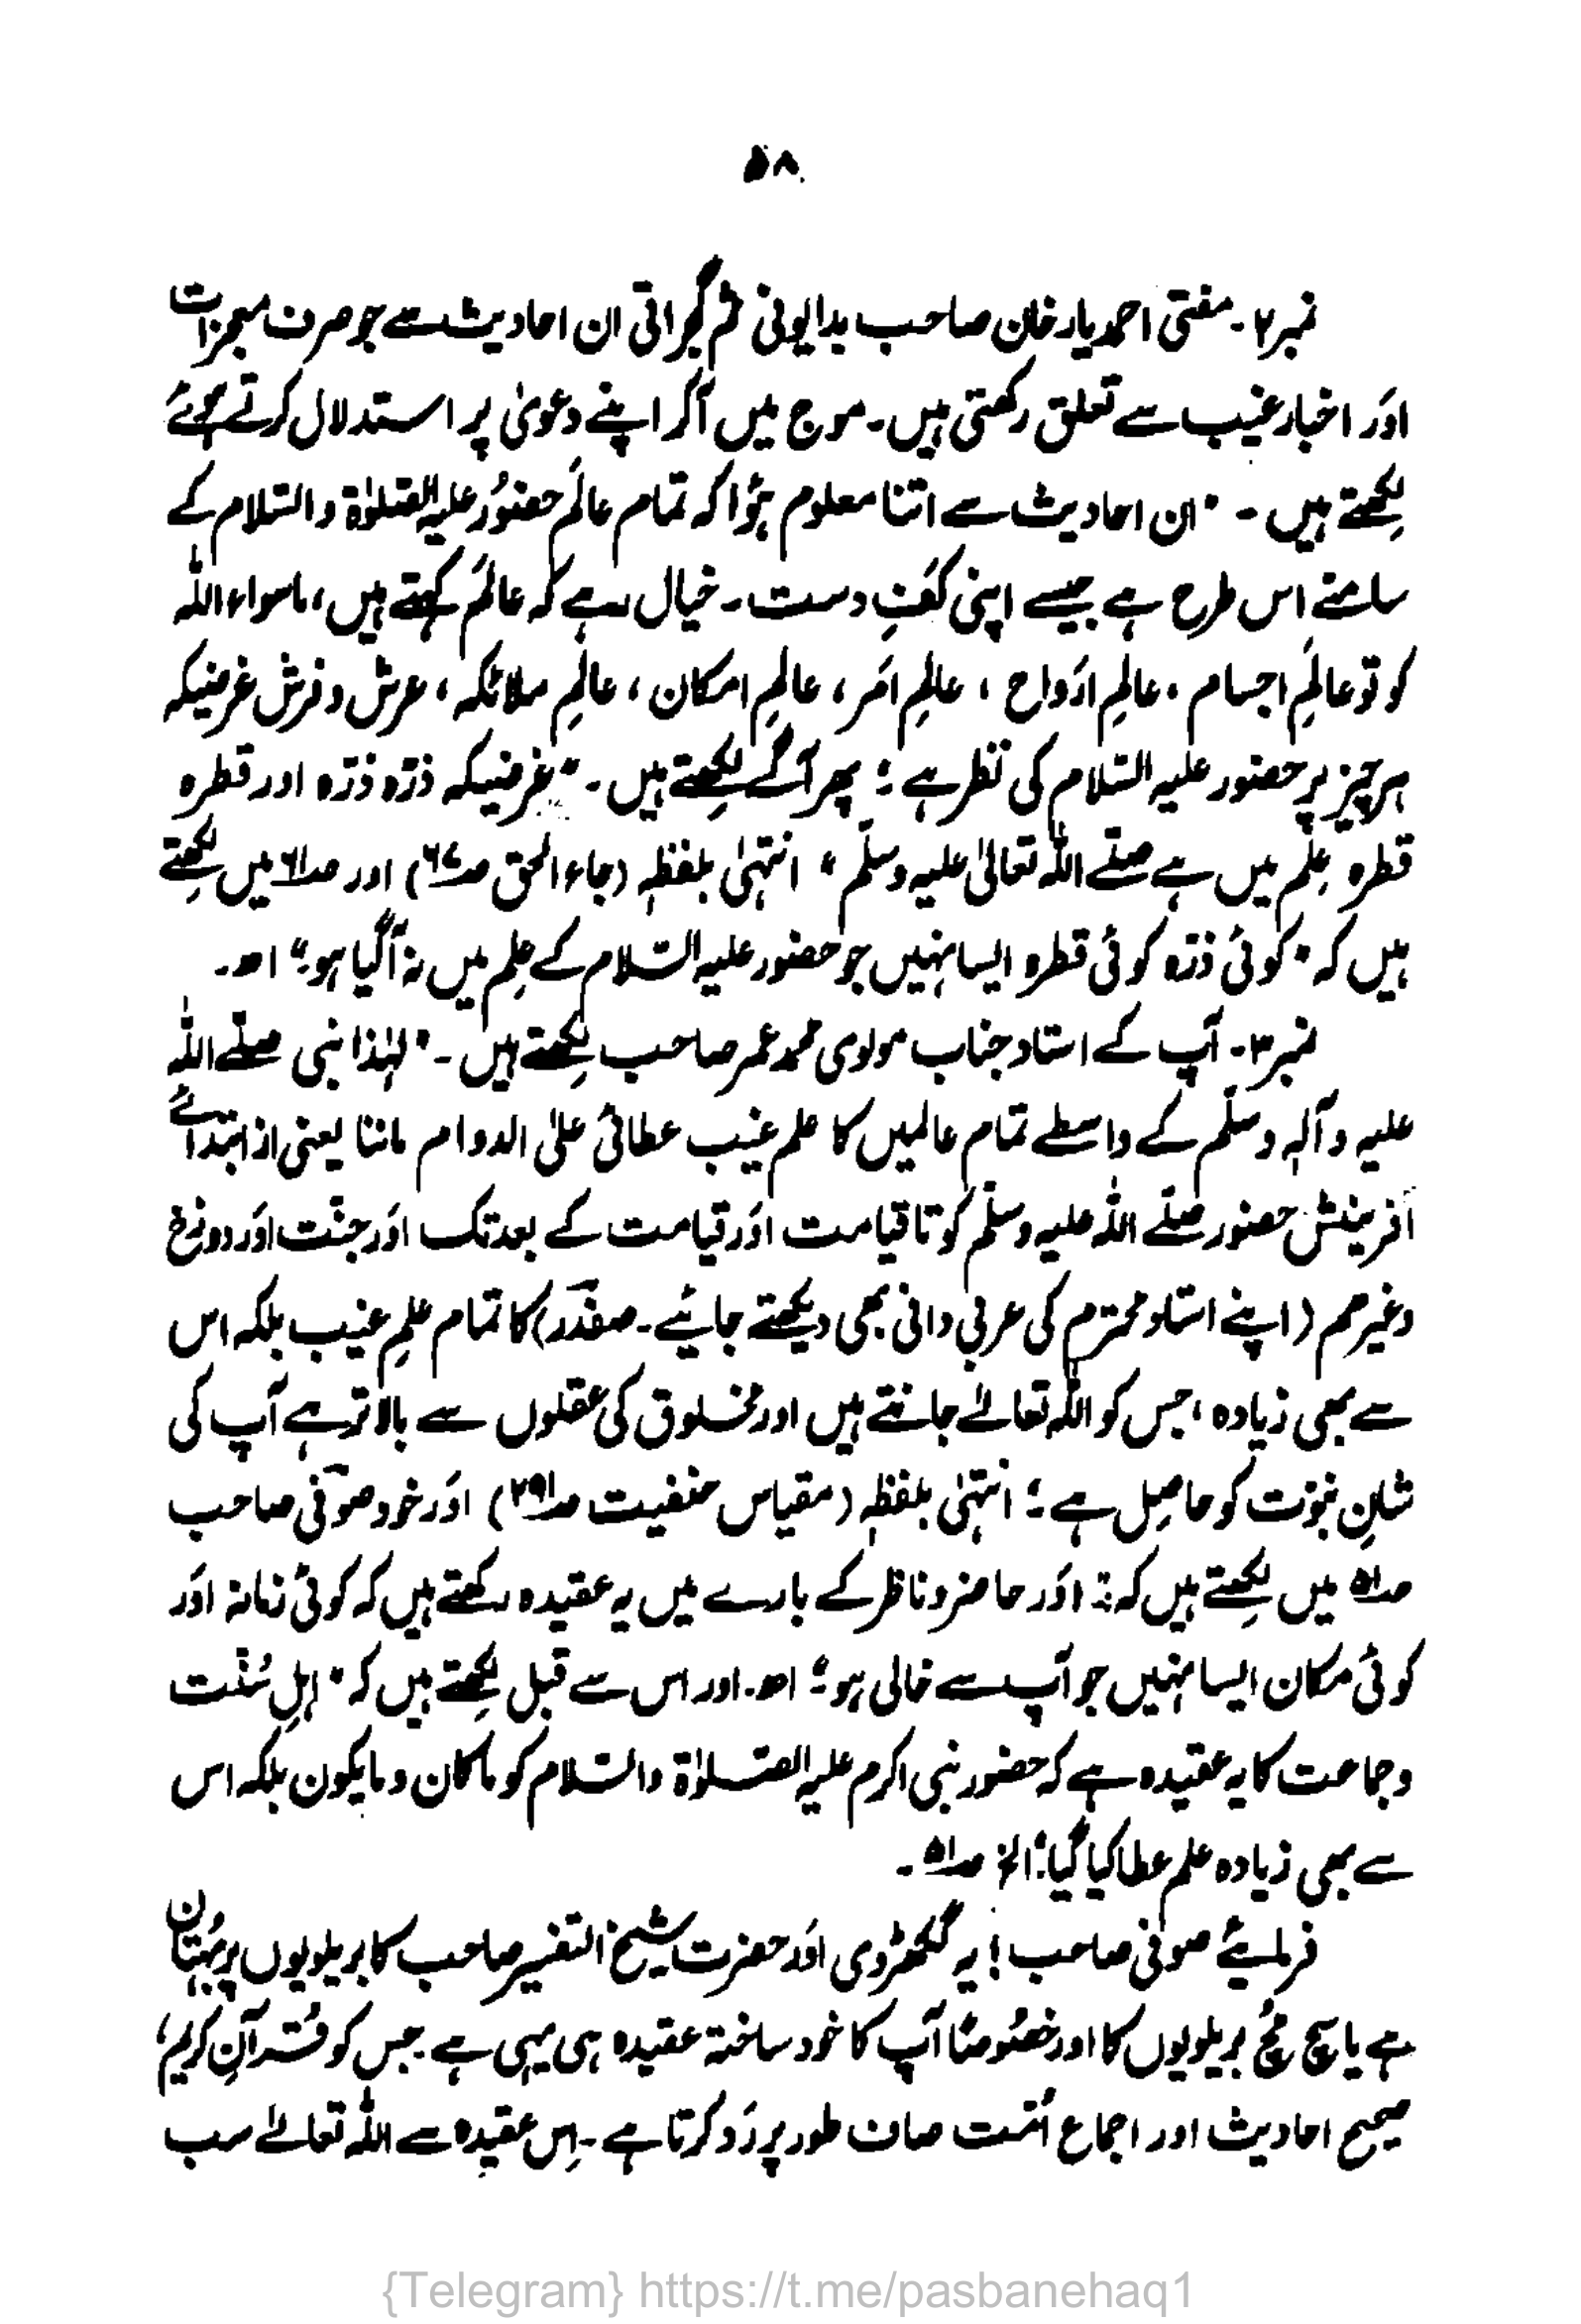 ۵۸
نمبر۲۔ مفتی احمد یار خان صاحب بدایونی ثم گجراتی ان احادیث سے جو صرف معجزات
اور اخبار غیب سے تعلق رکھتی ہیں۔ موج میں آکر اپنے دعویٰ پر استدلال کرتے ہوئے
لکھتے ہیں۔ "ان احادیث سے اتنا معلوم ہؤا کہ تمام عالَم حضُور علیہ الصّلوٰۃ والسّلام کے
سامنے اس طرح ہے جیسے اپنی کفِ دست۔ خیال رہے کہ عالَم کہتے ہیں، ماسواء اللہ
کو تو عالَمِ اجسام ، عالمِ ارَواح ، عالمِ امَر ، عالمِ امکان ، عالمِ ملائکہ ، عرش و فرش غرضیکہ
ہر چیز پر حضور علیہ السّلام کی نظر ہے؛ پھر آگے لکھتے ہیں۔ "غرضیکہ ذرّہ ذرّہ اور قطرہ
قطرہ عِلم میں ہے صلّے اللّٰہ تعالیٰ علیہ وسلّم" انتہیٰ بلفظہٖ (جاء الحق صـ۶۷) اور صـ۶۱ میں لکھتے
ہیں کہ "کوئی ذرّہ کوئی قطرہ ایسا نہیں جو حضور علیہ السّلام کے عِلم میں نہ آگیا ہو؛" اھ۔
نمبر۳۔ آپ کے استاد جناب مولوی محمد عمر صاحب لکھتے ہیں۔ "لہٰذا نبی صلّے اللّٰہ
علیہ و آلہٖ وسلّم کے واسطے تمام عالمیں کا علم غیب عطائی علیٰ الدوام ماننا یعنی از ابتدائے
آفرینش حضور صلّے اللّٰہ علیہ وسلّم کو تا قیامت اوَر قیامت کے بعد تک اوَر جنّت اوَر دوزخ
وغیرھم (اپنے استاد محترم کی عربی دانی بھی دیکھتے جائیے۔ صفدر) کا تمام علمِ غیب بلکہ اس
سے بھی زیادہ، جس کو اللّٰہ تعالےٰ جانتے ہیں اور مخلوق کی عقلوں سے بالاتر ہے آپ کی
شانِ نبوّت کو حاصِل ہے؛ انتہیٰ بلفظہٖ (مقیاس حنفیت صـ۲۹۱) اوَر خود صوفی صاحب
صـ۵۱ میں لکھتے ہیں کہ: اوَر حاضر و ناظر کے بارے میں یہ عقیدہ رکھتے ہیں کہ کوئی زمانہ اوَر
کوئی مکان ایسا نہیں جو آپ سے خالی ہو؛" اھ۔ اور اس سے قبل لکھتے ہیں کہ "اہلِ سُنّت
وجماعت کا یہ عقیدہ ہے کہ حضور نبی اکرم علیہ الصّلوٰۃ والسّلام کو ماکان و مایکون بلکہ اس
سے بھی زیادہ علم عطا کیا گیا؛" الخ صـ۵۱۔
فرمائیے صوفی صاحب! یہ گکھڑوی اوَر حضرت شیخ التفسیر صاحب کا بریلویوں پر بُہتان
ہے یا سچ مُچ بریلویوں کا اور خصُوصًا آپ کا خود ساختہ عقیدہ ہی یہی ہے۔ جس کو قُرآنِ کریم،
صحیح احادیث اور اجماع اُمّت صاف طور پر رَد کرتا ہے۔ اِس عقیدہ سے اللّٰہ تعالےٰ سب
{Telegram} https://t.me/pasbanehaq1